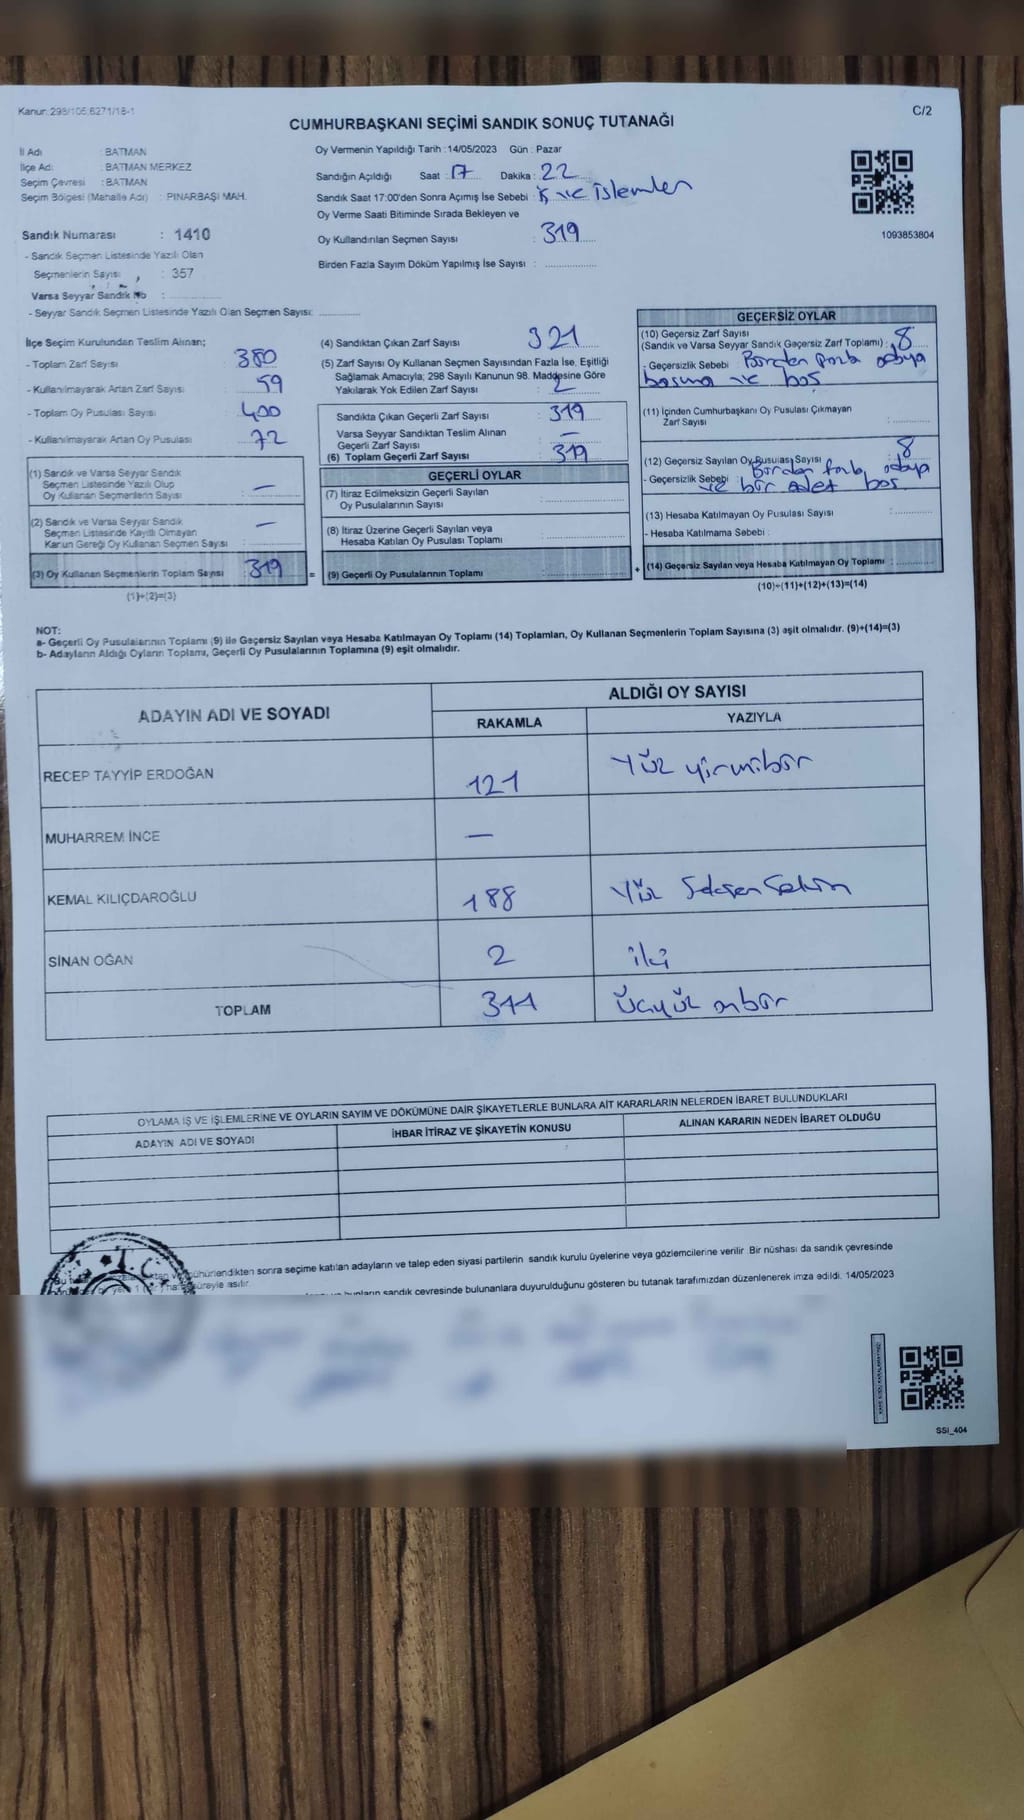 Kanun: 298/105;6271/18-1
C/2
CUMHURBAŞKANI SEÇİMİ SANDIK SONUÇ TUTANAĞI
İl Adı : BATMAN
İlçe Adı : BATMAN MERKEZ
Seçim Çevresi : BATMAN
Seçim Bölgesi (Mahalle Adı) : PINARBAŞI MAH.
Sandık Numarası : 1410
- Sandık Seçmen Listesinde Yazılı Olan
Seçmenlerin Sayısı : 357
Varsa Seyyar Sandık No :
- Seyyar Sandık Seçmen Listesinde Yazılı Olan Seçmen Sayısı:
Oy Vermenin Yapıldığı Tarih : 14/05/2023 Gün : Pazar
Sandığın Açıldığı Saat : 17 Dakika : 22
Sandık Saat 17:00'den Sonra Açımış İse Sebebi : İş ve işlemler
Oy Verme Saati Bitiminde Sırada Bekleyen ve
Oy Kullandırılan Seçmen Sayısı : 319
Birden Fazla Sayım Döküm Yapılmış İse Sayısı :
1093853804
İlçe Seçim Kurulundan Teslim Alınan;
- Toplam Zarf Sayısı : 380
- Kullanılmayarak Artan Zarf Sayısı : 59
- Toplam Oy Pusulası Sayısı : 400
- Kullanılmayarak Artan Oy Pusulası : 72
(1) Sandık ve Varsa Seyyar Sandık
Seçmen Listesinde Yazılı Olup
Oy Kullanan Seçmenlerin Sayısı : —
(2) Sandık ve Varsa Seyyar Sandık
Seçmen Listesinde Kayıtlı Olmayan
Kanun Gereği Oy Kullanan Seçmen Sayısı : —
(3) Oy Kullanan Seçmenlerin Toplam Sayısı : 319
(1)+(2)=(3)
(4) Sandıktan Çıkan Zarf Sayısı : 321
(5) Zarf Sayısı Oy Kullanan Seçmen Sayısından Fazla İse, Eşitliği
Sağlamak Amacıyla; 298 Sayılı Kanunun 98. Maddesine Göre
Yakılarak Yok Edilen Zarf Sayısı : 2
Sandıkta Çıkan Geçerli Zarf Sayısı : 319
Varsa Seyyar Sandıktan Teslim Alınan
Geçerli Zarf Sayısı : —
(6) Toplam Geçerli Zarf Sayısı : 319
GEÇERLİ OYLAR
(7) İtiraz Edilmeksizin Geçerli Sayılan
Oy Pusulalarının Sayısı :
(8) İtiraz Üzerine Geçerli Sayılan veya
Hesaba Katılan Oy Pusulası Toplamı :
= (9) Geçerli Oy Pusulalarının Toplamı :
GEÇERSİZ OYLAR
(10) Geçersiz Zarf Sayısı
(Sandık ve Varsa Seyyar Sandık Geçersiz Zarf Toplamı) : 8
- Geçersizlik Sebebi : Birden fazla adaya
basma ve boş
(11) İçinden Cumhurbaşkanı Oy Pusulası Çıkmayan
Zarf Sayısı :
(12) Geçersiz Sayılan Oy Pusulası Sayısı : 8
- Geçersizlik Sebebi : Birden fazla adaya
ve bir adet boş
(13) Hesaba Katılmayan Oy Pusulası Sayısı :
- Hesaba Katılmama Sebebi :
+ (14) Geçersiz Sayılan veya Hesaba Katılmayan Oy Toplamı :
(10)+(11)+(12)+(13)=(14)
NOT:
a- Geçerli Oy Pusulalarının Toplamı (9) ile Geçersiz Sayılan veya Hesaba Katılmayan Oy Toplamı (14) Toplamları, Oy Kullanan Seçmenlerin Toplam Sayısına (3) eşit olmalıdır. (9)+(14)=(3)
b- Adayların Aldığı Oyların Toplamı, Geçerli Oy Pusulalarının Toplamına (9) eşit olmalıdır.
ADAYIN ADI VE SOYADI
ALDIĞI OY SAYISI
RAKAMLA YAZIYLA
RECEP TAYYİP ERDOĞAN 121 Yüz yirmibir
MUHARREM İNCE —
KEMAL KILIÇDAROĞLU 188 Yüz Seksen Sekiz
SİNAN OĞAN 2 iki
TOPLAM 311 üçyüz onbir
OYLAMA İŞ VE İŞLEMLERİNE VE OYLARIN SAYIM VE DÖKÜMÜNE DAİR ŞİKAYETLERLE BUNLARA AİT KARARLARIN NELERDEN İBARET BULUNDUKLARI
ADAYIN ADI VE SOYADI İHBAR İTİRAZ VE ŞİKAYETİN KONUSU ALINAN KARARIN NEDEN İBARET OLDUĞU
T.C.
sonra seçime katılan adayların ve talep eden siyasi partilerin sandık kurulu üyelerine veya gözlemcilerine verilir. Bir nüshası da sandık çevresinde
asılır.
bunların sandık çevresinde bulunanlara duyurulduğunu gösteren bu tutanak tarafımızdan düzenlenerek imza edildi. 14/05/2023
SSI_404